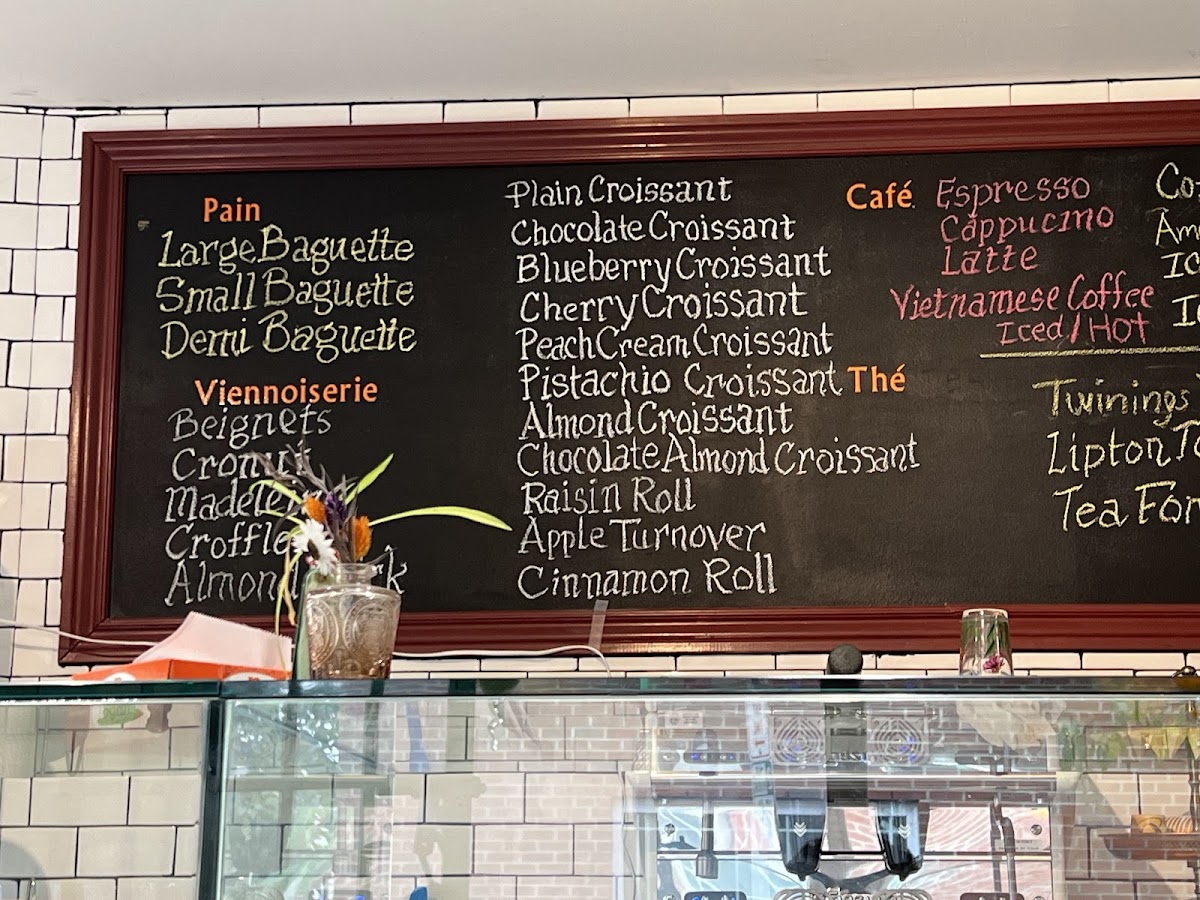 Pain
Large Baguette
Small Baguette
Demi Baguette
Viennoiserie
Beignets
Almond
Plain Croissant
Chocolate Croissant
Blueberry Croissant
Cherry Croissant
Peach Cream Croissant
Pistachio Croissant
Almond Croissant
Chocolate Almond Croissant
Raisin Roll
Apple Turnover
Cinnamon Roll
Café
Espresso
Cappucino
Latte
Vietnamese Coffee
Iced/Hot
Thé
Twinings
Lipton
Tea For